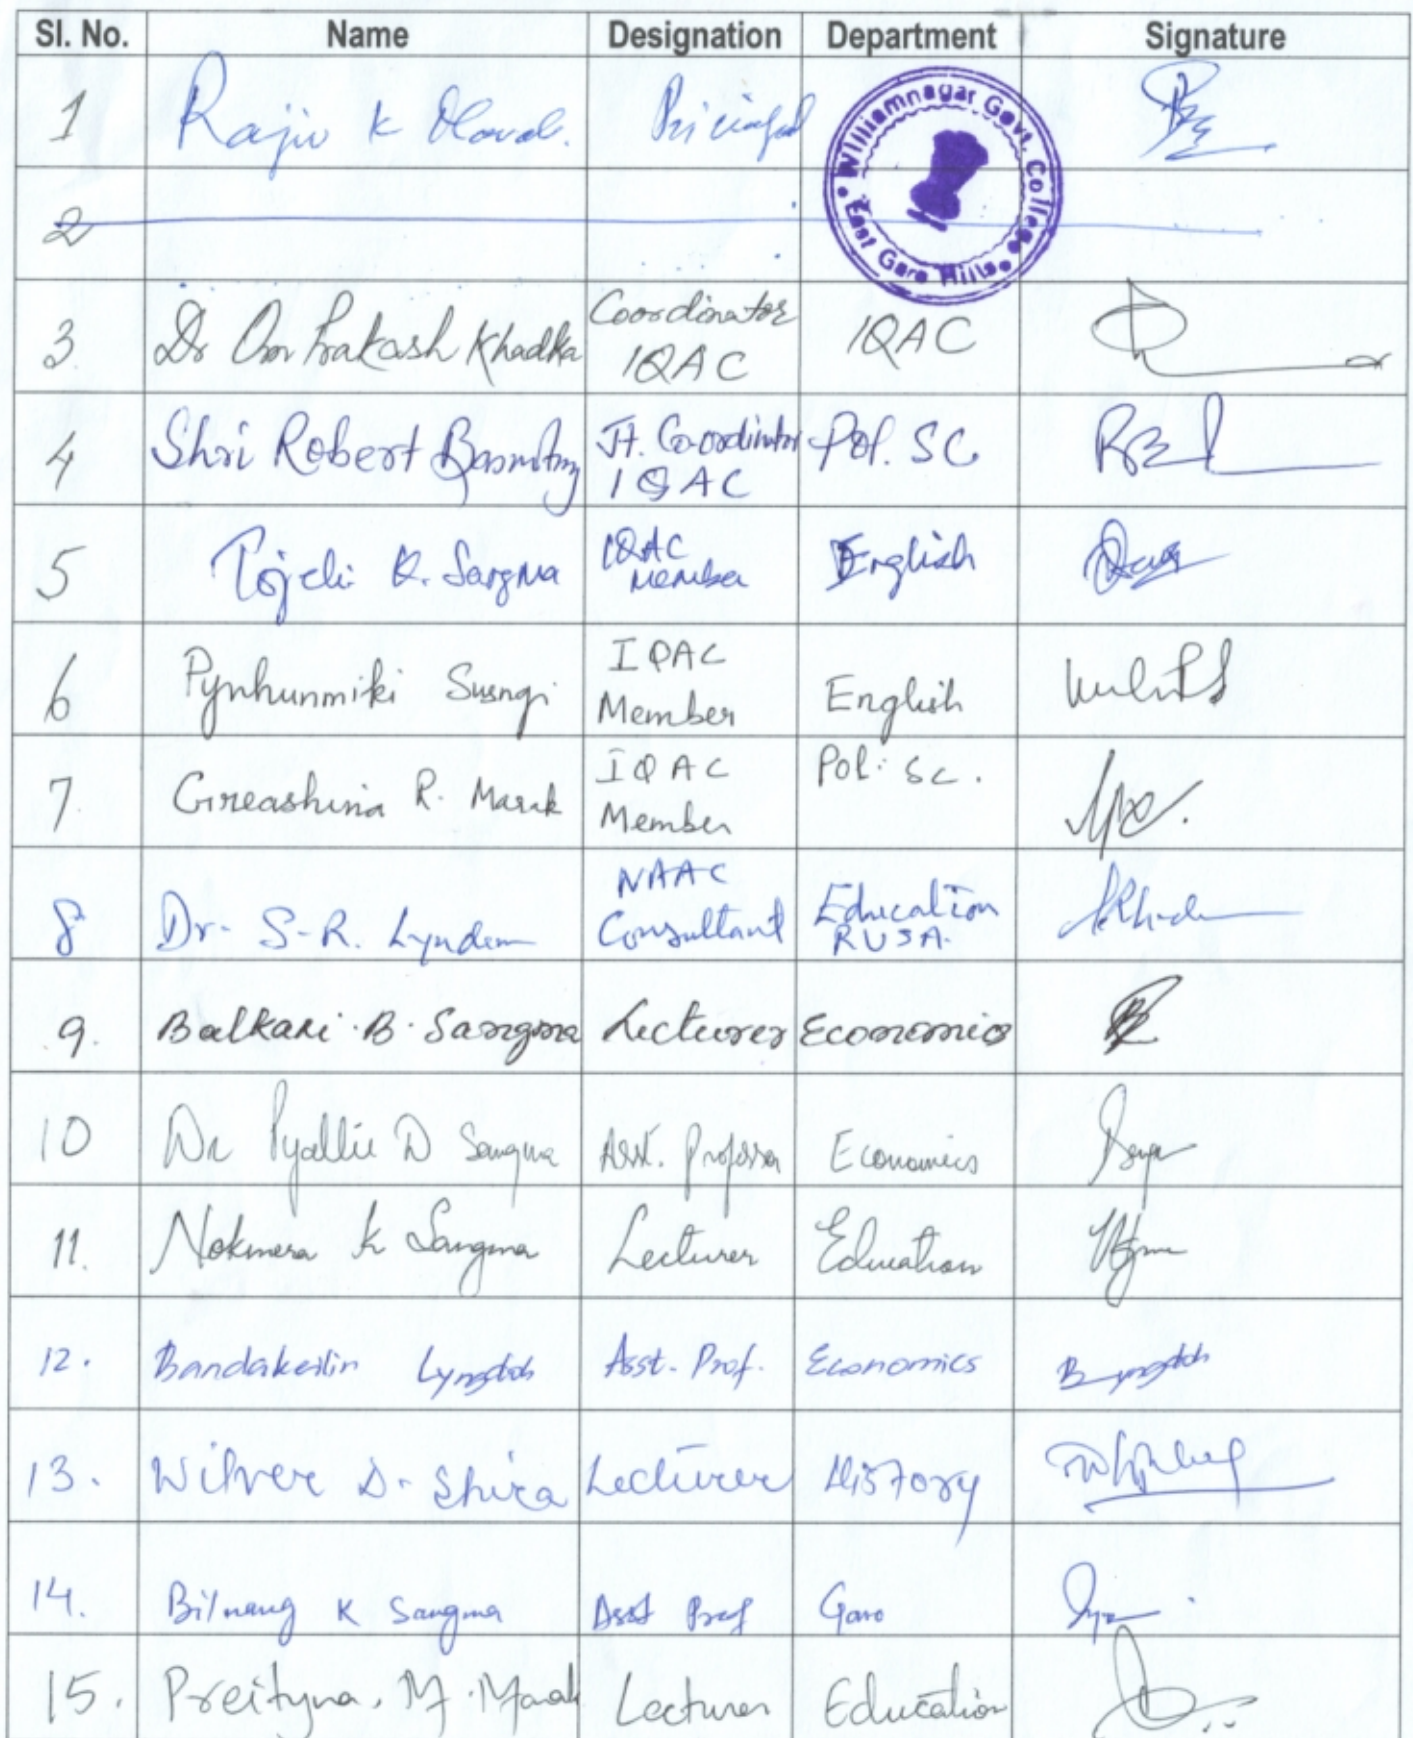 Sl. No. Name Designation Department Signature
1 Rajiv K Principal
Williamnagar Govt. College
East Garo Hills
2
3. Dr Om Prakash Khadka Coordinator IQAC IQAC
4 Shri Robert Jt. Co-ordinator IQAC Pol. SC
5 K. Sangma IQAC Member English
6 Pynhunmiki Susngi IQAC Member English
7. Greashina R. Marak IQAC Member Pol. Sc.
8 Dr. S-R. Lyndem NAAC Consultant Education RUSA.
9. Balkari B. Sangma Lecturer Economics
10 Dr Pyallie D Sangma Asst. Professor Economics
11. Nokmera K Sangma Lecturer Education
12. Bandakerlin Lyngdoh Asst. Prof. Economics
13. Wilver D. Shira Lecturer History
14. Bilnang K Sangma Asst Prof Garo
15. Preityna. M. Marak Lecturer Education